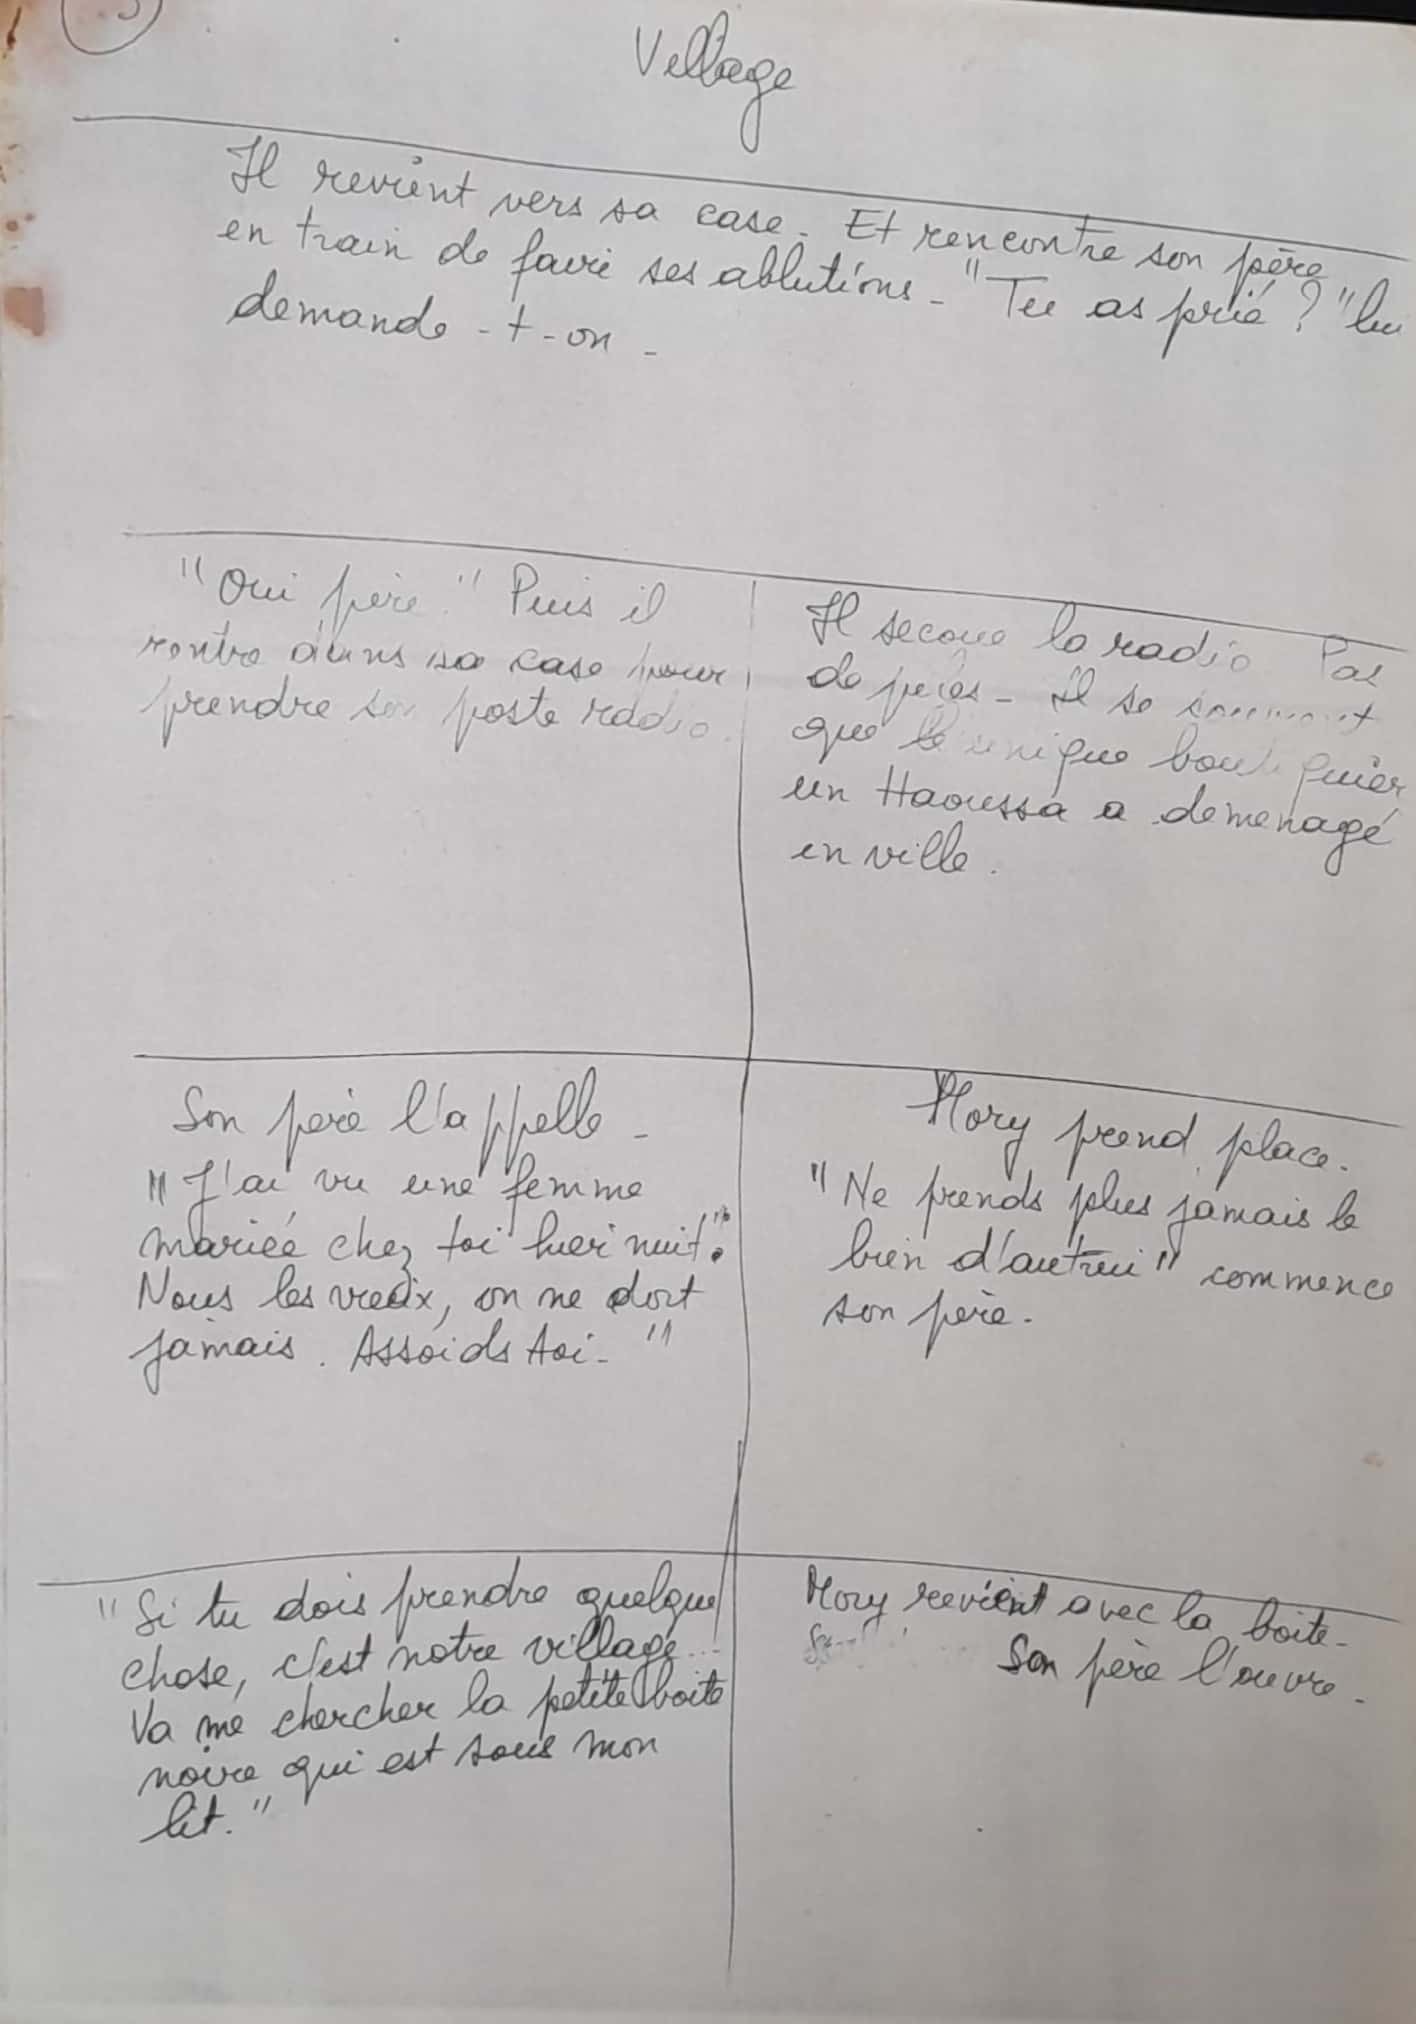 3
Village
Il revient vers sa case. Et rencontre son père
en train de faire ses ablutions - "Tu as prié ? " lui
demande -t-on -
"Oui père." Puis il
rentre dans sa case pour
prendre son poste radio.
Il secoue la radio. Pas
de piles - Il se souvient
que le unique boutiquier
un Haoussa a demenagé
en ville.
Son père l'appelle -
"J'ai vu une femme
mariée chez toi hier nuit".
Nous les vieux, on ne dort
jamais. Assoids toi - "
Mory prend place.
"Ne prends plus jamais le
bien d'autrui" commence
son père.
"Si tu dois prendre quelque
chose, c'est notre village...
Va me chercher la petite boite
noire qui est sous mon
lit."
Mory revient avec la boite -
Son père l'ouvre.